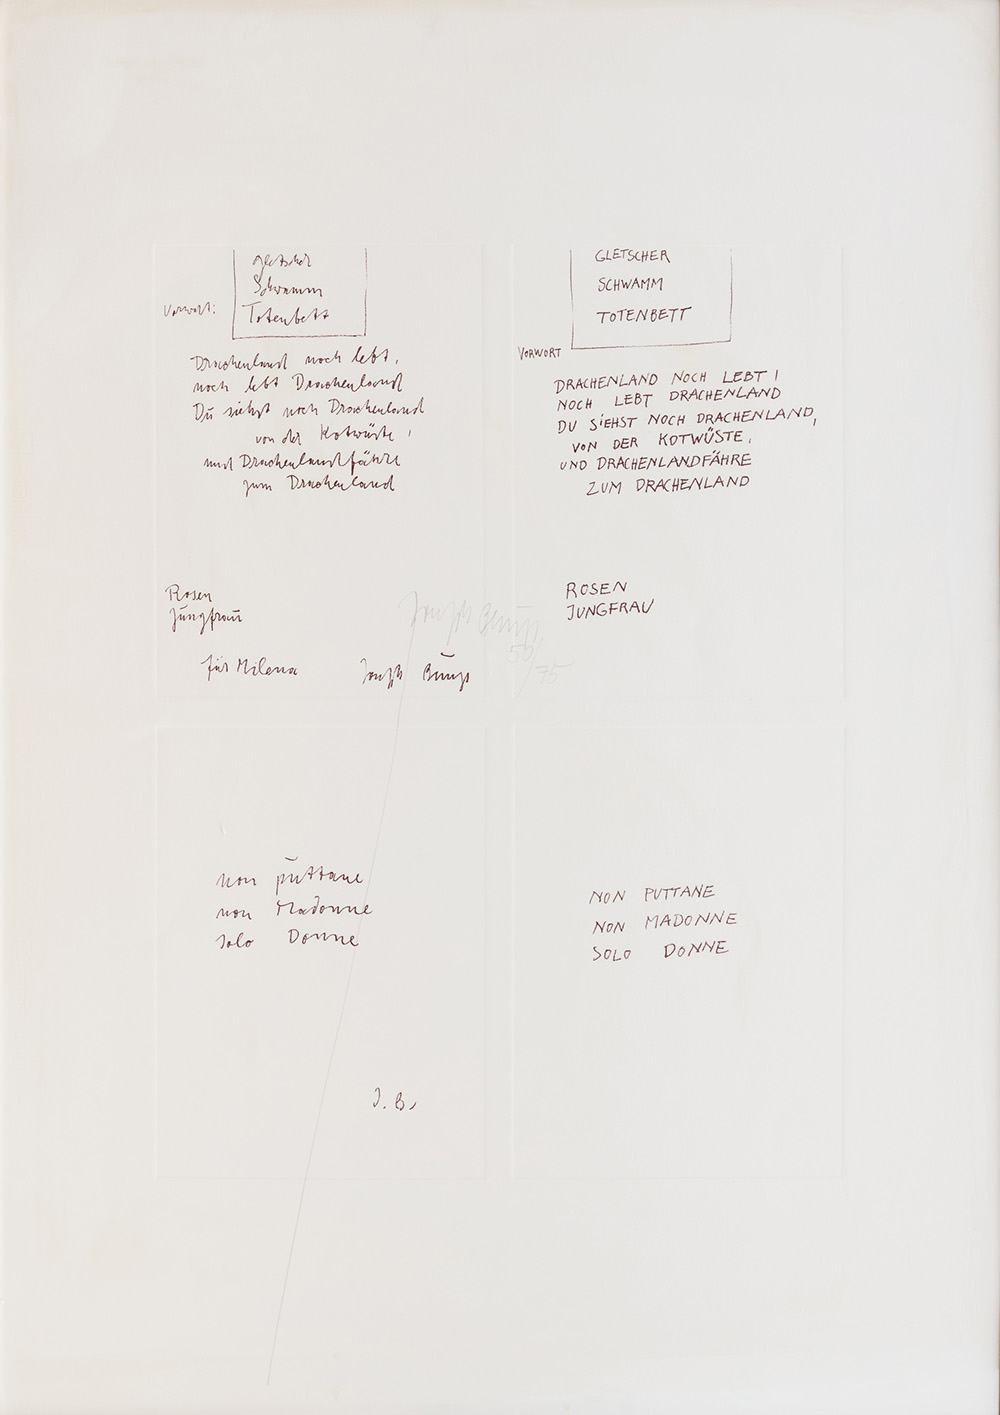 gletscher
Schwamm
Vorwort:
Totenbett
Drachenland noch lebt,
noch lebt Drachenland
Du siehst noch Drachenland
von der Kotwüste,
und Drachenlandfähre
zum Drachenland
Rosen
Jungfrau
für Milena
Joseph Beuys
GLETSCHER
SCHWAMM
TOTENBETT
VORWORT
DRACHENLAND NOCH LEBT!
NOCH LEBT DRACHENLAND
DU SIEHST NOCH DRACHENLAND,
VON DER KOTWÜSTE,
UND DRACHENLANDFÄHRE
ZUM DRACHENLAND
ROSEN
JUNGFRAU
Joseph Beuys
/75
non puttane
non Madonne
solo Donne
J. B.
NON PUTTANE
NON MADONNE
SOLO DONNE